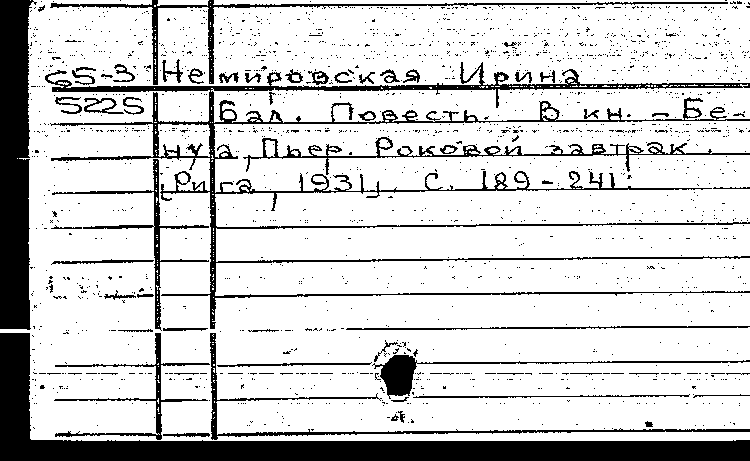 65-3 Немировская Ирина
5225 Бал. Повесть. В кн. - Бе-
нуа, Пьер. Роковой завтрак.
[Рига, 1931]. С. 189-241.